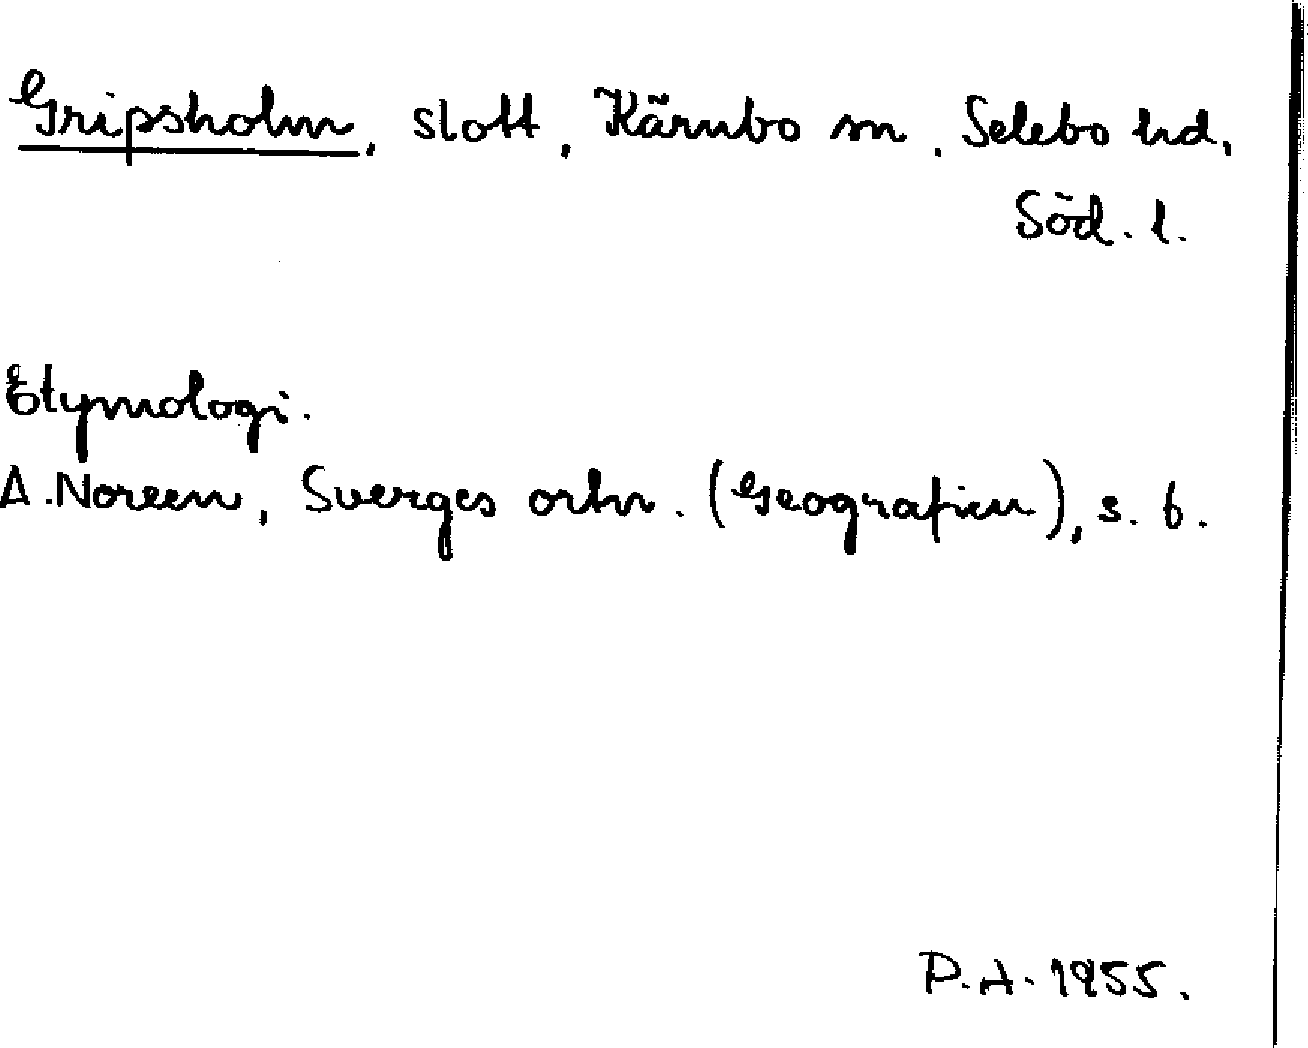 Gripsholm, slott, Kärnbo sn, Selebo hd,
Söd. l.
Etymologi.
A. Noreen, Sverges ortn. (Geografien), s. 6.
P.A. 1955.